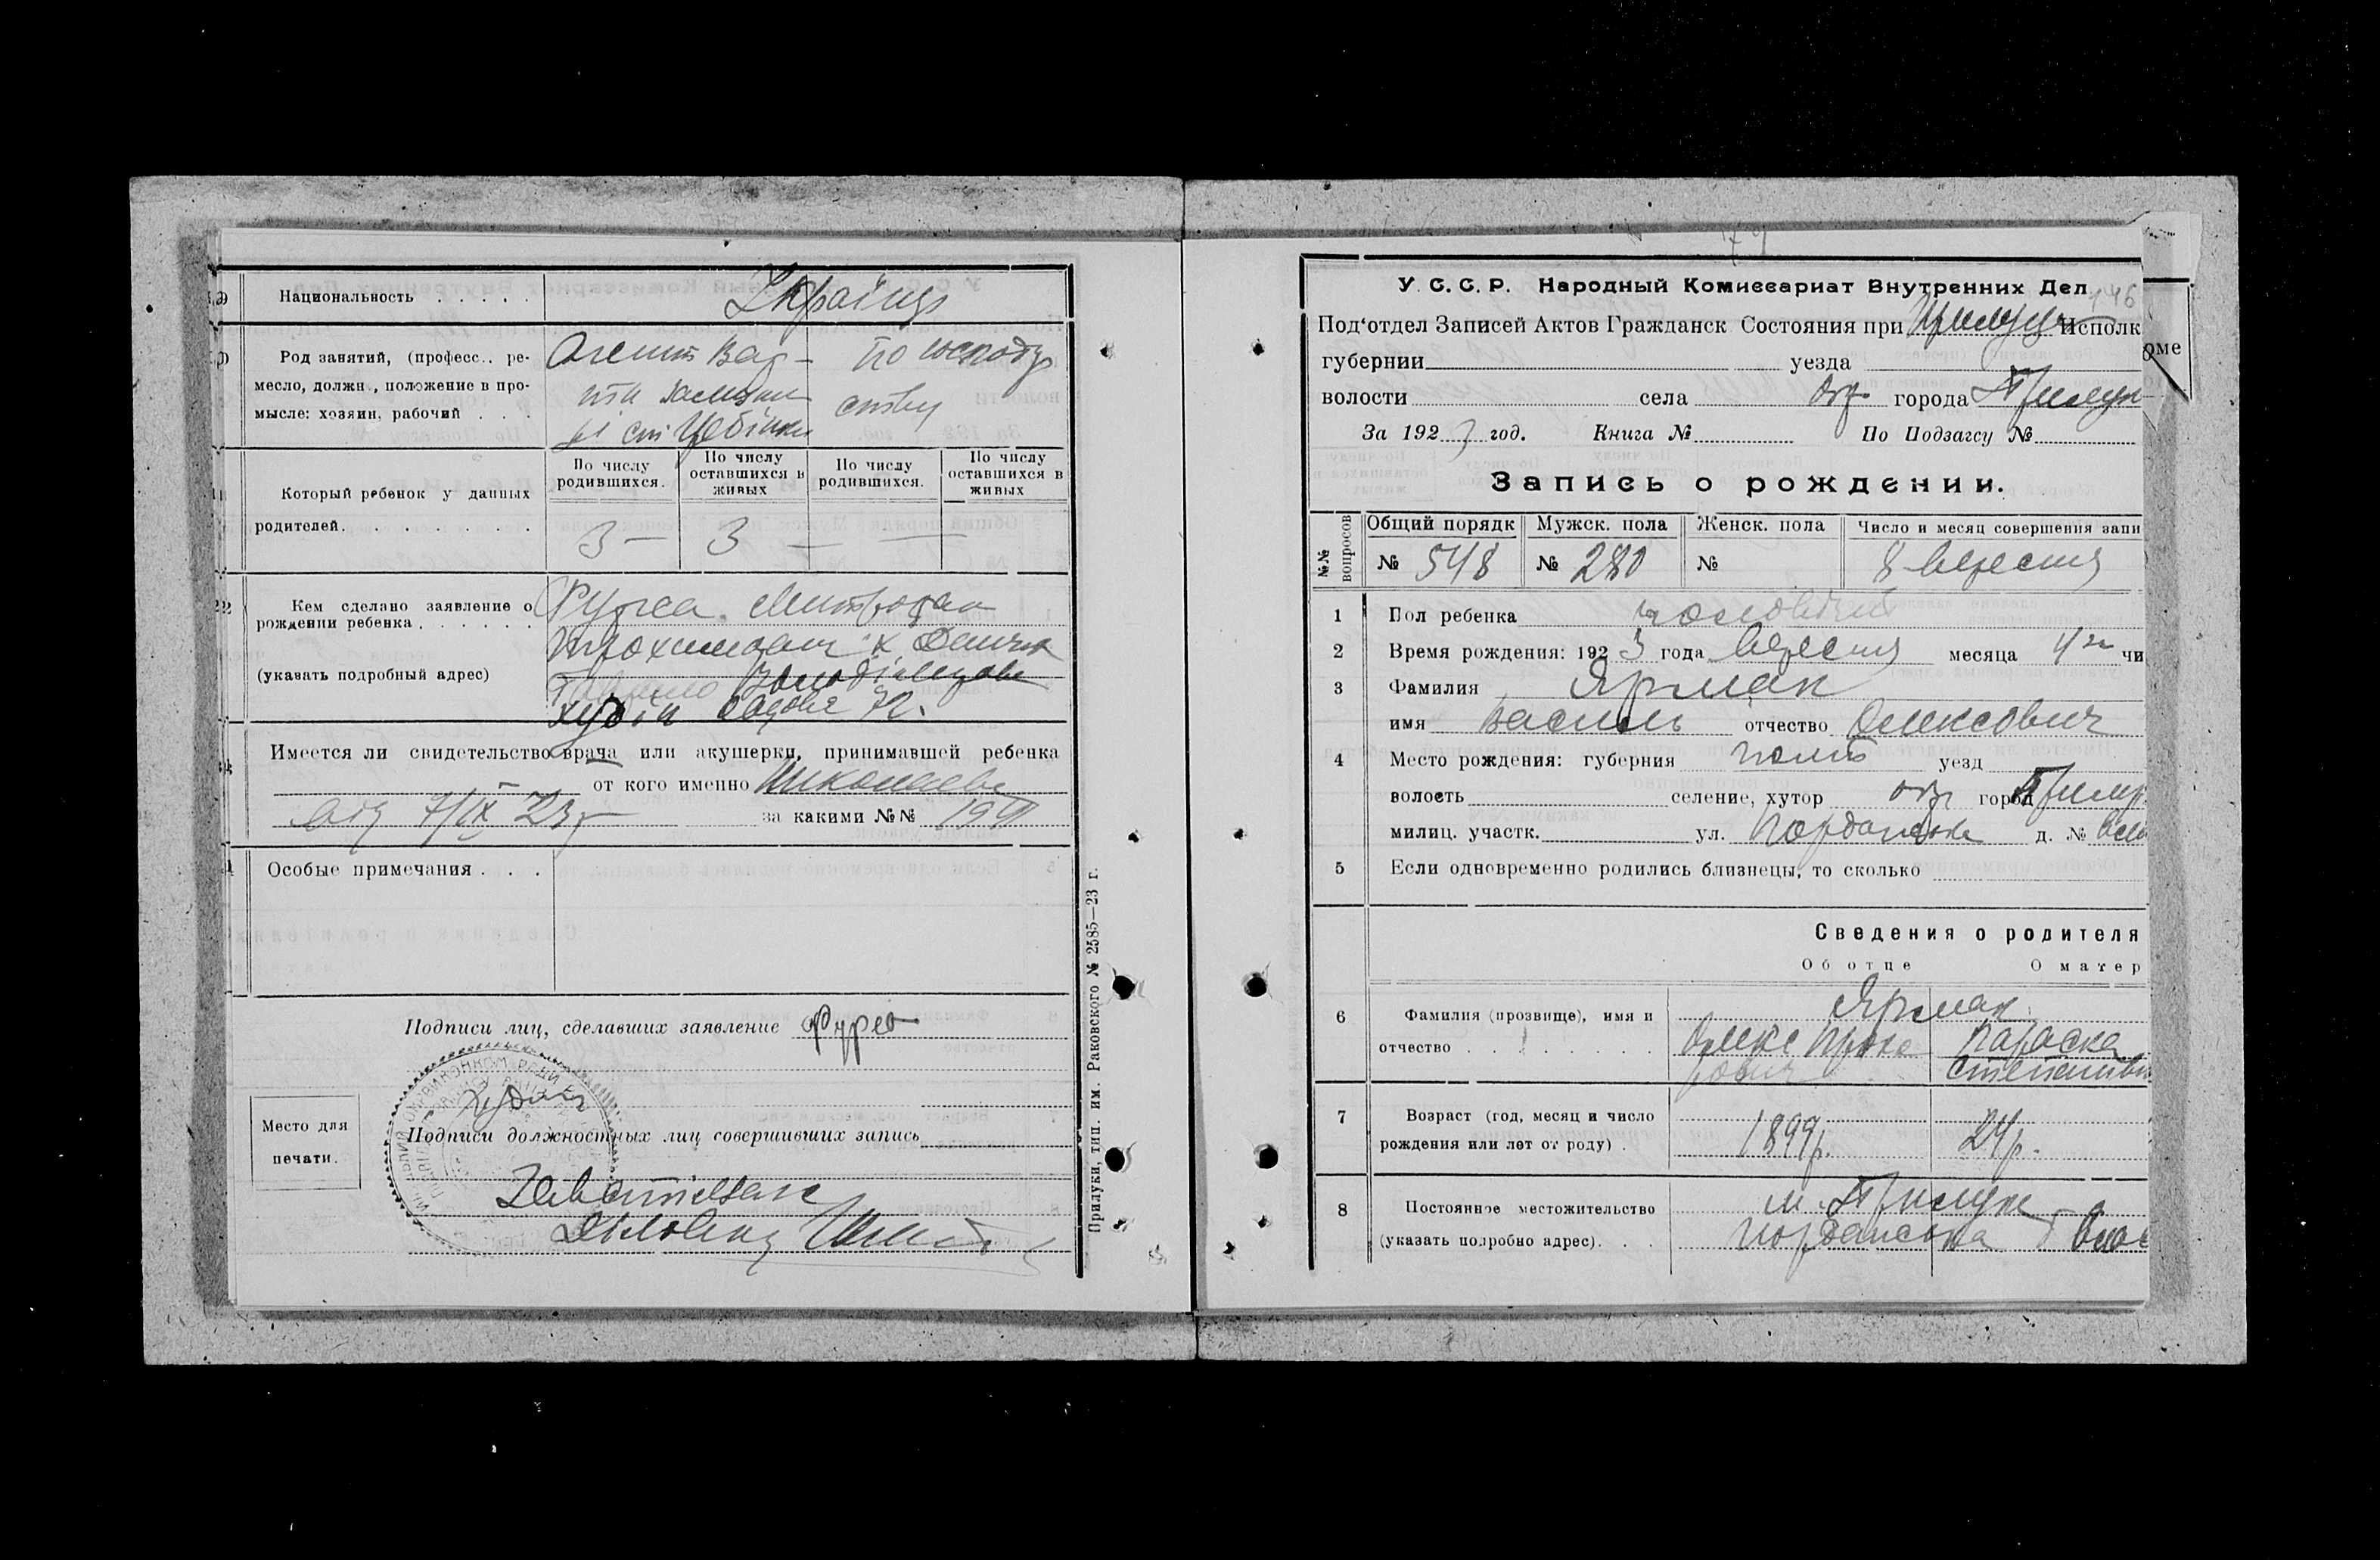 Национальность . . . . . Українці
Род занятий, (професс., ре-
месло, должн., положение в про-
мысле: хозяин, рабочий . . .
Агент
по господар
ству
Который ребенок у данных
родителей. . . . . . . .
По числу родившихся.
По числу оставшихся в живых
По числу родившихся.
По числу оставшихся в живых
3 — 3 — —
Кем сделано заявление о
рождении ребенка . . . . . .
(указать подробный адрес)
Имеется ли свидетельство врача или акушерки, принимавшей ребенка
от кого именно Николаева
від 7/IX 23 р за какими №№ 199
Особые примечания . . .
Подписи лиц, сделавших заявление
Место для
печати.
Подписи должностных лиц совершивших запись
Прилуки, тип. им. Раковского № 2585—23 г.
146
У. С. С. Р. Народный Комиссариат Внутренних Дел
Под‘отдел Записей Актов Гражданск Состояния при Прилуц Исполк
оме
губернии уезда
волости села города Прилук
За 1923 год. Книга № По Подзагсу №
Запись о рождении.
№№ вопросов
Общий порядк Мужск. пола Женск. пола Число и месяц совершения запи
№ 548 № 280 № 8 вересня
1 Пол ребенка чоловічий
2 Время рождения: 1923 года вересня месяца 4го чи
3 Фамилия Ярмак
имя Василь отчество Олексович
4 Место рождения: губерния Полт уезд
волость селение, хутор город Прилук
милиц. участк. ул. Йорданська д. №
5 Если одновременно родились близнецы, то сколько
Сведения о родителя
Об отце О матер
6 Фамилия (прозвище), имя и
отчество . . . . . . . .
Ярмак
Олекс Проко
рович
Параска
Степанівн
7 Возраст (год, месяц и число
рождения или лет от роду) .
1899р. 24р.
8 Постоянное местожительство
(указать подробно адрес). . .
м. Прилуки
Йорданська